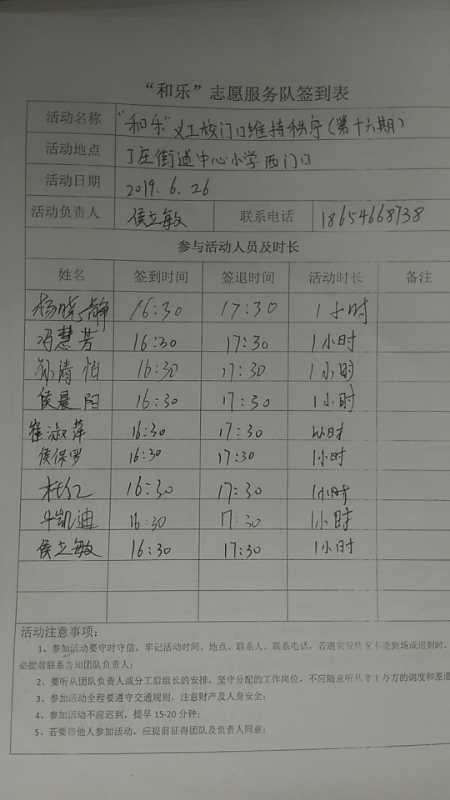 “和乐”志愿服务队签到表
活动名称 “和乐”义工校门口维持秩序(第十六期)
活动地点 丁庄街道中心小学西门口
活动日期 2019.6.26
活动负责人 侯立敏 联系电话 18654668738
参与活动人员及时长
姓名 签到时间 签退时间 活动时长 备注
杨晓静 16:30 17:30 1小时
冯慧芳 16:30 17:30 1小时
孙倩怡 16:30 17:30 1小时
侯晨阳 16:30 17:30 1小时
崔淑萍 16:30 17:30 1小时
侯保罗 16:30 17:30 1小时
杜红 16:30 17:30 1小时
牛凯迪 16:30 17:30 1小时
侯立敏 16:30 17:30 1小时
活动注意事项:
1、参加活动要守时守信,牢记活动时间、地点、联系人、联系电话,若遇突发情况不能到场或迟到时,
必提前联系告知团队负责人;
2、要听从团队负责人或分工后组长的安排,坚守分配的工作岗位,不可随意听从非主办方的调度和差遣
3、参加活动全程要遵守交通规则,注意财产及人身安全;
4、参加活动不应迟到,提早15-20分钟;
5、若要带他人参加活动,应提前征得团队及负责人同意;